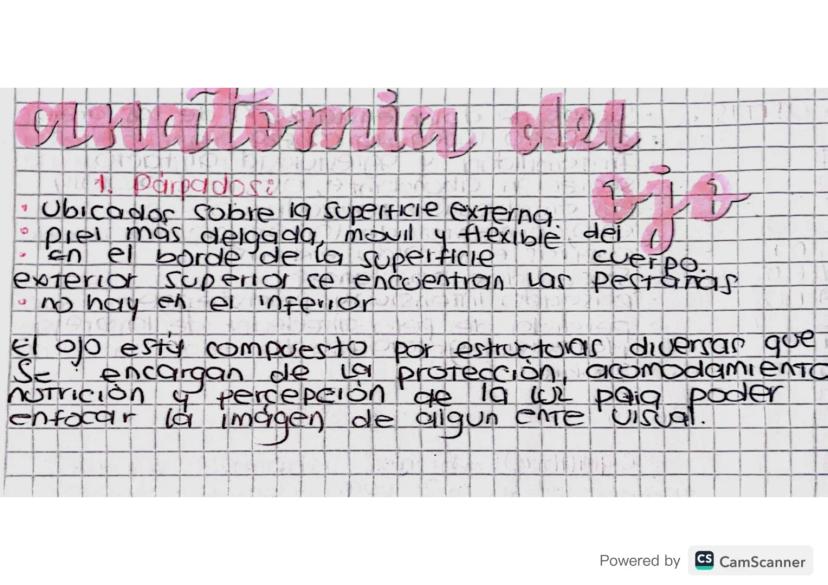 anatomia del
ojo
1. Parpados:
• Ubicados sobre la superficie externa.
• Piel más delgada, movil y flexible del cuerpo.
• En el borde de la superficie
exterior superior se encuentran las pestañas
• no hay en el inferior
El ojo está compuesto por estructuras diversas que
se encargan de la protección, acomodamiento
nutrición y percepción de la luz para poder
enfocar la imágen de algun ente visual.
Powered by CS CamScanner